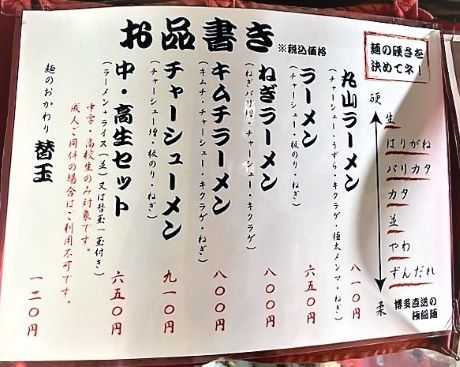 お品書き ※税込価格
麺の硬さを
決めてネ!
硬
生
はりがね
バリカタ
カタ
並
やわ
ずんだれ
柔
博多直送の
極細麺
丸山ラーメン 八一〇円
(チャーシュー・うずら・キクラゲ・極太メンマ・ねぎ)
ラーメン 六五〇円
(チャーシュー・板のり・ねぎ)
ねぎラーメン 八〇〇円
(ねぎ・チャーシュー・キクラゲ)
キムチラーメン 八〇〇円
(キムチ・チャーシュー・キクラゲ・ねぎ)
チャーシューメン 九一〇円
(チャーシュー増・板のり・ねぎ)
中・高生セット 六五〇円
(ラーメン+ライス(並)又は替玉一玉付き)
中学・高校生のみ対象です。
成人ご同伴の場合はご利用不可です。
麺のおかわり 替玉 一二〇円